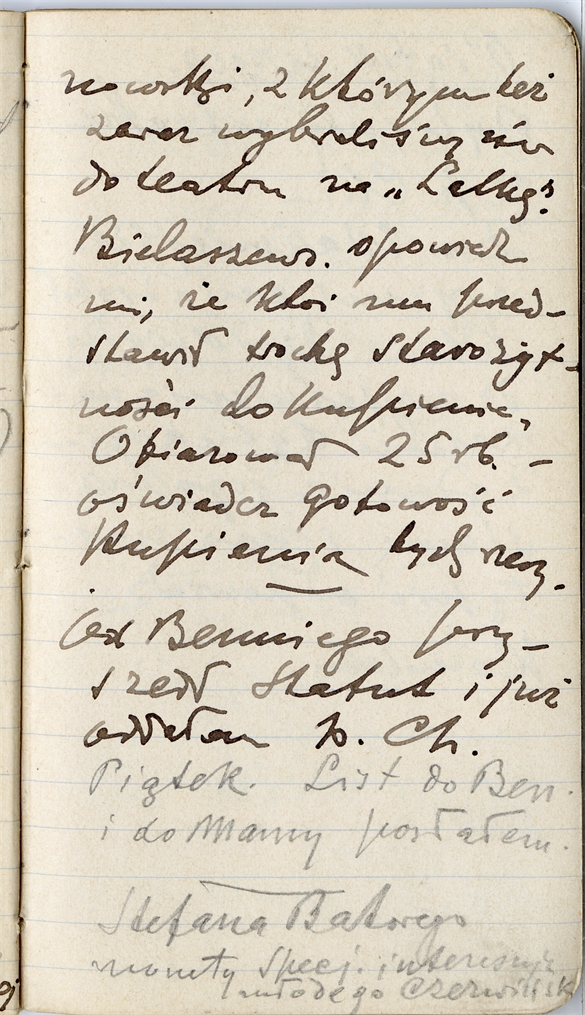 nowski, z którym też
zaraz wybraliśmy się
do teatru na „Lalkę”.
Bielaszews. opowiedz
mi, że ktoś mu przed-
stawił trochę starożyt-
ności do kupienia,
Ofiarował 25 rb. –
oświadcz gotowość
kupienia tych rzeczy.
Od Benniego przy-
szedł Statut i już
oddałem p. Ch.
Piątek. List do Ben.
i do Mamy posłałem.
Stefana Batorego
monety specj. interesują
młodego Czerwińsk